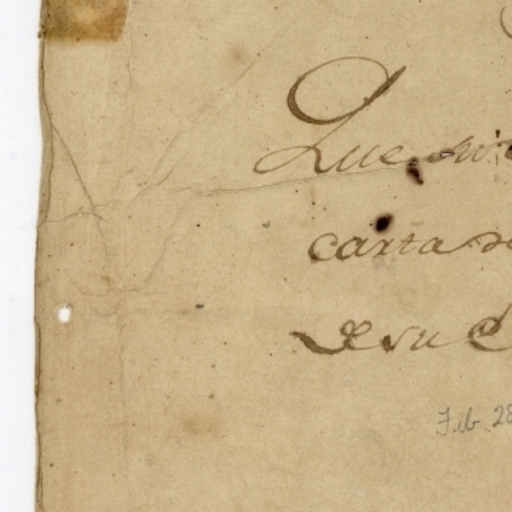 Que su
carta de
de su C
Feb. 28